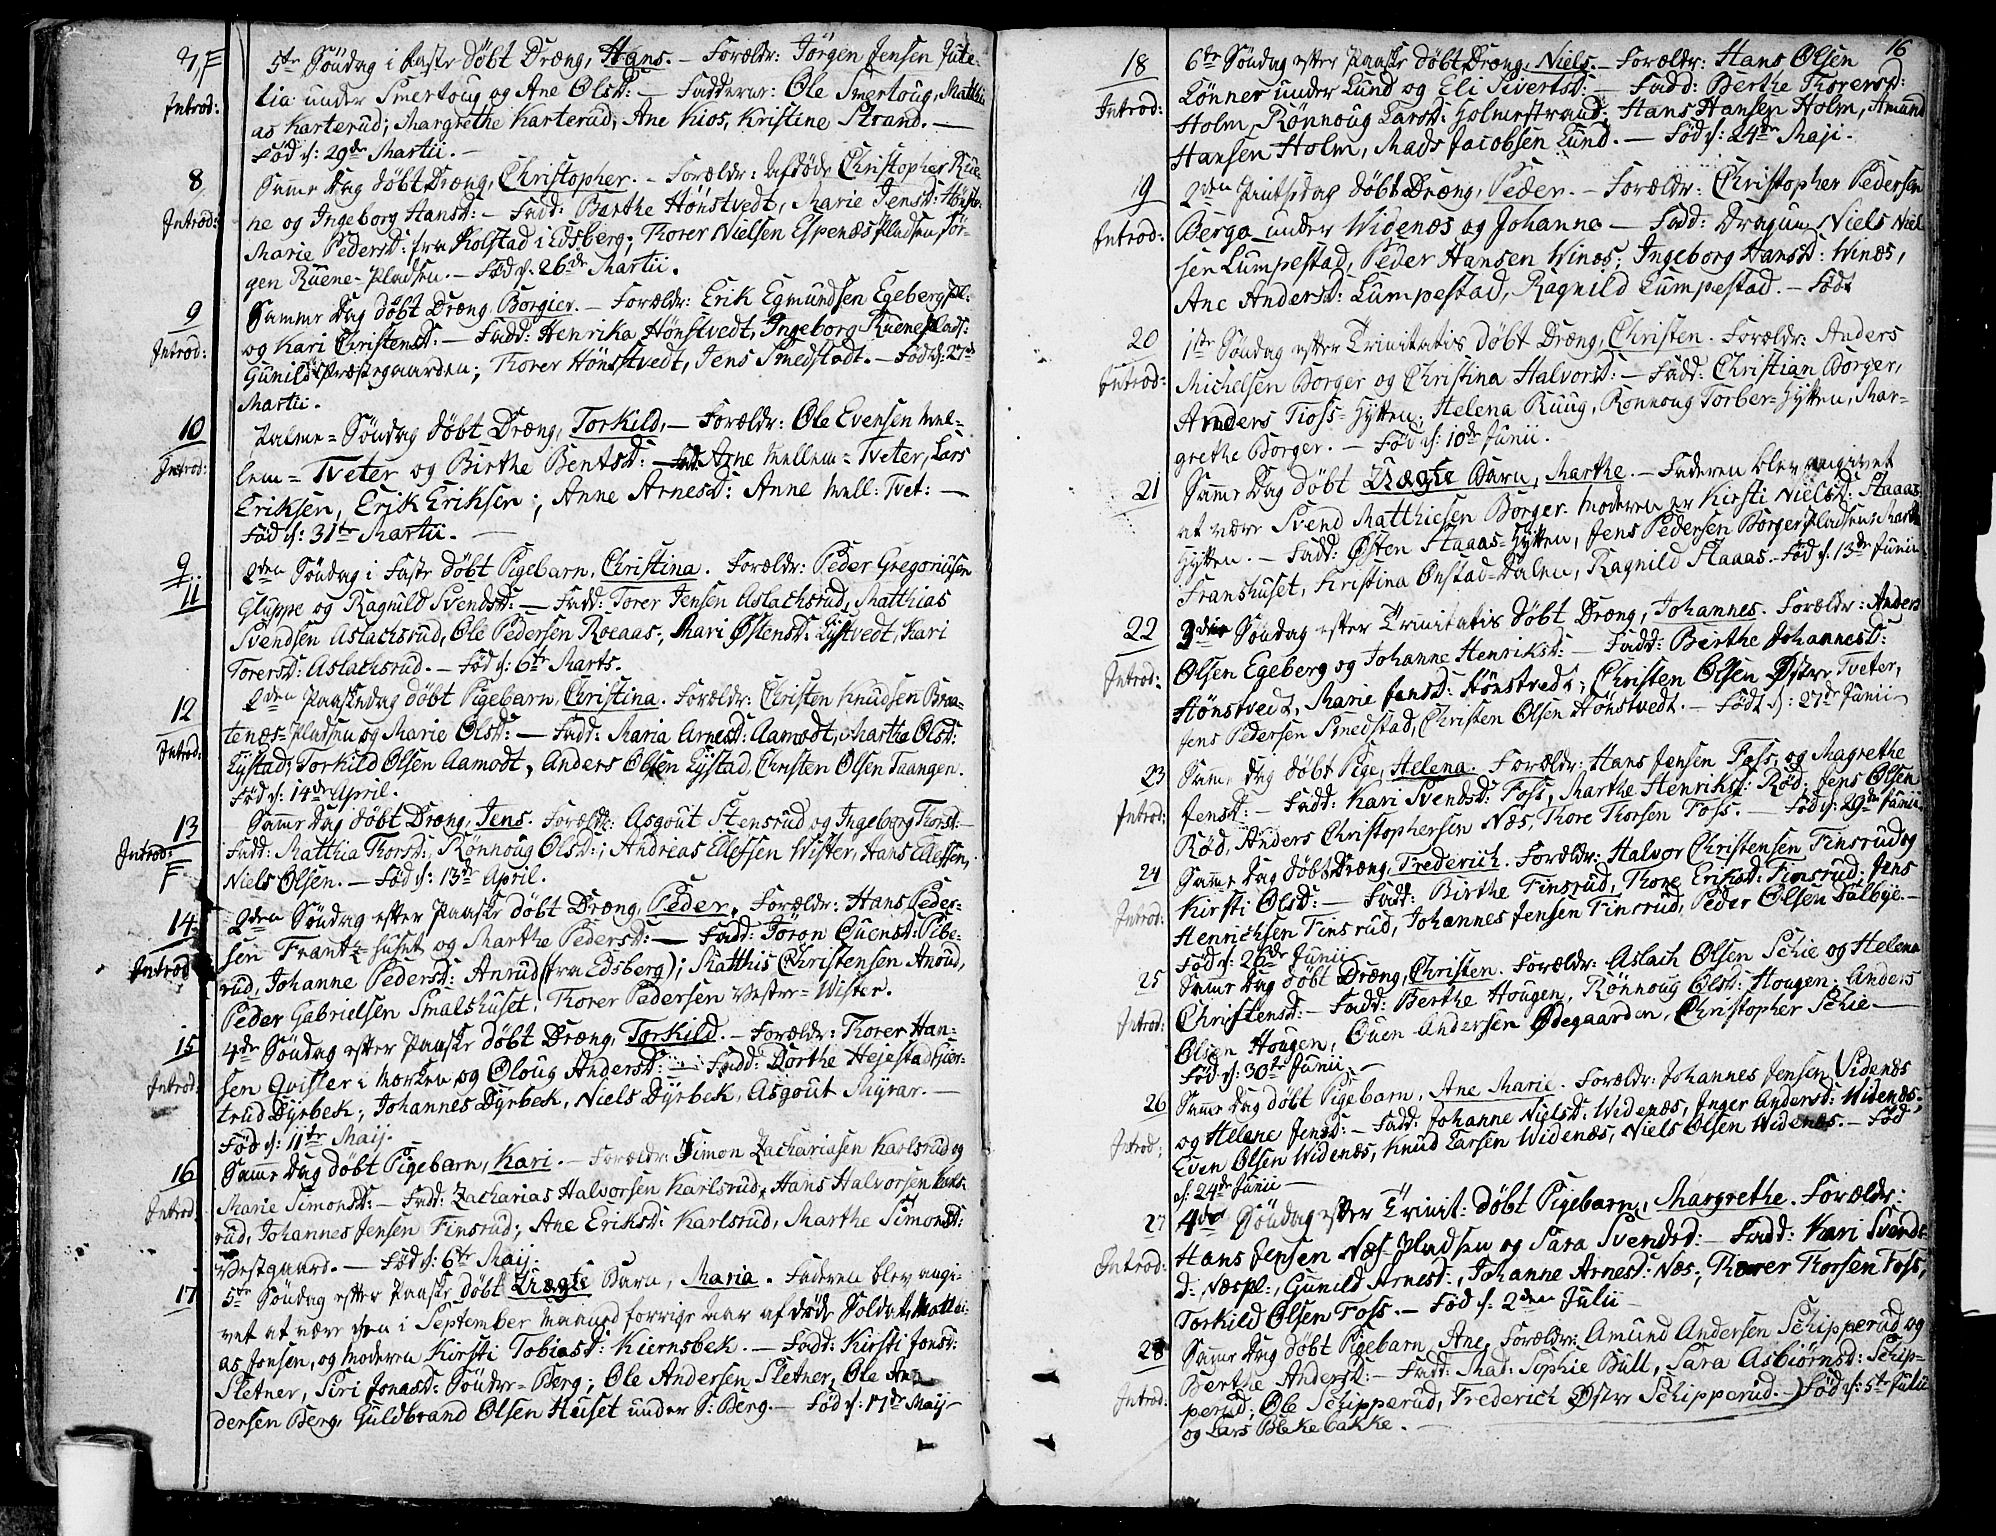 7, F
5te Söndag i Faste döbt Dræng, Hans. — Forældr: Jörgen Jensen Jute-
Introd:
lia under Smertoug og Ane Olsd: — Fadderne: Ole Smertoug, Matthi
as Karterud; Margrethe Karterud, Ane Kios, Kristine Strand. —
Föd d: 29de Martii. —
8
Samme Dag döbt Dræng, Christopher. — Forældr: Afdöde Christopher Rue-
Introd:
ne og Ingeborg Hansd: — Fadd: Barthe Hönstvedt, Marie Jensd:
Marie Pedersd: fra Kolstad i Edsberg; Thorer Nielsen Espenæs Pladsen Jör-
gen Ruene-Pladsen. — Föd d. 26de Martii.
9
Samme Dag döbt Dræng Borgier. — Forældr: Erik Egmundsen Egeberg Pl:
Introd:
og Kari Christensd: — Fadd: Henrika Hönstvedt, Ingeborg Ruene Plads:
Gunild Præstegaarden; Thorer Hönstvedt, Jens Smedstadt. — Föd d: 27de
Martii.
10
Palme-Söndag döbt Dræng, Torkild. — Forældr: Ole Evensen Mel-
Introd:
lem-Tveter og Birthe Bentsd: — Arne Mellem-Tveter, Lars
Eriksen, Erik Eriksen; Anne Arnesd: Anne Mell: Tvet: —
Föd d: 31te Martii. —
9
11
2den Söndag i Faste döbt Pigebarn, Christina. Forældr: Peder Gregoriusen
Gluppe og Ragnild Svendsd: — Fadd: Torer Jensen Aslachsrud, Matthias
Svendsen Aslachsrud, Ole Pedersen Roeaas; Mari Østensd: Lystvedt, Kari
Torersd: Aslachsrud. — Föd d: 6te Marts.
12
2den Paaskedag döbt Pigebarn, Christina. Forældr: Christen Knudsen Braa-
Introd:
tenæs-Pladsen og Marie Olsd: — Fadd: Maria Arnesd: Aamodt, Marthe Olsd:
Eystad; Torkild Olsen Aamodt, Anders Olsen Eystad, Christen Olsen Taangen.
Föd d: 14de April.
13
Samme Dag döbt Dræng, Jens. Forældr: Asgout Stensrud og Ingeborg Thorsd: —
Introd: F
Fadd: Matthia Thorsd:, Rönnoug Olsd:; Andreas Ellefsen Wister, Hans Ellefsen,
Niels Olsen. — Föd d: 13de April.
14
2den Söndag efter Paaske döbt Dræng, Peder. Forældr: Hans Peder-
Introd
sen Frantz huset og Marthe Pedersd: — Fadd: Jöron Ouensd: Pibe-
rud, Johanne Pedersd: Anrud (fra Edsberg); Matthis Christensen Anrud,
Peder Gabrielsen Smalshuset, Thorer Pedersen Vester-Wister.
15
4de Söndag efter Paaske döbt Dræng, Torkild. — Forældr: Thorer Han-
Introd:
sen Qvisler i Morken og Oloug Andersd: — Fadd: Dorthe Hejestad Gier-
trud Dyrbek; Johannes Dyrbek, Niels Dyrbek, Asgout Myrar. —
Föd d: 11te Maij.
16
Samme Dag döbt Pigebarn, Kari. — Forældr: Simon Zachariasen Karlsrud og
Introd
Marie Simonsd: — Fadd: Zacharias Halvorsen Karlsrud, Hans Halvorsen Karls-
rud, Johannes Jensen Finsrud; Ane Eriksd: Karlsrud, Marthe Simonsd:
Vestgaard. — Föd d: 6te Maij.
17
5te Söndag efter Paaske döbt Uægte Barn, Maria. Faderen blev angi-
vet at være den i September Maaned forrige Aar afdöde Soldat Matthi-
as Jonsen, og Moderen Kirsti Tobiesd: Kiernsbek. — Fadd: Kirsti Jonsd:
Sletner, Siri Jonasd: Sönder-Berg; Ole Andersen Sletner, Ole An-
dersen Berg, Guldbrand Olsen Huset under S: Berg. — Föd d. 17de Maij
16
18
6te Söndag efter Paaske döbt Dræng, Niels. — Forældr: Hans Olsen
Introd:
Lönner under Lund og Eli Sivertsd: — Fadd: Berthe Thorersd:
Holm, Rönnoug Larsd: Holmestrand; Hans Hansen Holm, Amund
Hansen Holm, Mads Jacobsen Lund. — Föd d: 24de Maji.
19
2den Pintsedag döbt Dræng, Peder. — Forældr: Christopher Pedersen
Introd:
Berga under Widenæs og Johanne — Fadd: Dragun Niels Niel
sen Lumpestad, Peder Hansen Winæs; Ingeborg Hansd: Winæs,
Ane Andersd: Lumpestad, Ragnild Lumpestad. — Födt
20
1ste Söndag efter Trinitatis döbt Dræng, Christen. Forældr: Anders
Introd:
Michelsen Borger og Christina Halvorsd: — Fadd: Christian Borger,
Anders Tioss-Hytten; Helena Ruug, Ronnoug Torber-Hytten, Mar-
grethe Borger. — Föd d: 10de Junii.
21
Samme Dag döbt Uægte Barn, Marthe. — Faderen blev angivet
at være Svend Matthiesen Borger. Moderen er Kirsti Nielsd: Staaas
Hytten. — Fadd: Østen Staaas-Hytten, Jens Pedersen Borger Pladsen; Marthe
Franshuset, Kristina Onstad-Dalen, Ragnild Staaas. Föd d. 13de Junii
22
3die Söndag efter Trinitatis döbt Dræng, Johannes. Forældr: Anders
Introd:
Olsen Egeberg og Johanne Henriksd: — Fadd: Berthe Johannesd:
Hönstvedt, Marie Jensd: Hönstvedt; Christen Olsen Øster Tveter,
Jens Pedersen Smedstad, Christen Olsen Hönstvedt. — Födt d: 27de Junii
23
Samme Dag döbt Pige, Helena. Forældr: Hans Jensen Foss, og Magrethe
Introd:
Jensd: — Fadd: Kari Svendsd: Foss, Marthe Henriksd: Röd; Jens Olsen
Röd, Anders Christophersen Næs, Thore Thorsen Foss. — Föd d: 29de Junii
24
Samme Dag döbt Dræng, Frederich. Forældr: Halvor Christensen Finsrud og
Introd:
Kirsti Olsd: — Fadd: Birthe Finsrud, Thore Eriksd: Finsrud; Jens
Henrichsen Finsrud, Johannes Jensen Finsrud, Peder Olsen Dalbye. —
Föd d: 26de Junii
25
Samme Dag döbt Dræng, Christen. Forældr: Aslach Olsen Schie og Helena
Introd:
Christensd: — Fadd: Berthe Hougen, Rönnoug Olsd: Hougen; Anders
Olsen Hougen, Ouen Andersen Ødegaarden, Christopher Schie —
Föd d: 30te Junii. —
26
Samme Dag döbt Pigebarn, Ane Marie. Forældr: Johannes Jensen Videnæs
Introd:
og Helene Jensd: — Fadd: Johanne Nielsd: Widenæs, Inger Andersd: Widenæs;
Even Olsen Widenæs, Knud Larsen Widenæs, Niels Olsen Widenæs. — Föd
d: 24de Junii —
27
4de Söndag efter Trinit: döbt Pigebarn, Margrethe. Forældr:
Introd:
Hans Jensen Næs Pladsen og Sara Svendsd: — Fadd: Kari Svends
d: Næspl:, Gunild Arnesd:, Johanne Arnesd: Næs; Thorer Thorsen Foss,
Torkild Olsen Foss. — Föd d: 2den Julii
28
Samme Dag döbt Pigebarn, Ane. Forældr: Amund Andersen Schipperud og
Introd:
Berthe Andersd: — Fadd: Mad: Sophie Bull, Sara Asbiörnsd: Schip-
perud; Ole Schipperud, Frederich Øster Schipperud. — Föd d: 5te Julii
og Lars Blekebakke. —